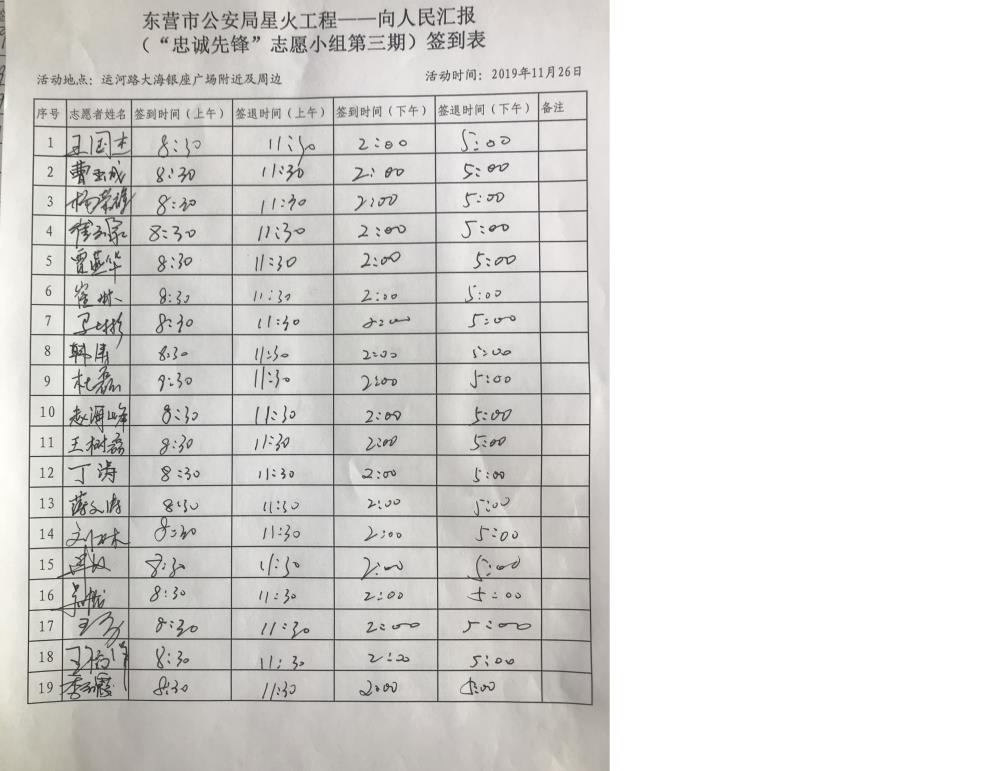 东营市公安局星火工程——向人民汇报
（“忠诚先锋”志愿小组第三期）签到表
活动地点：运河路大海银座广场附近及周边 活动时间：2019年11月26日
序号 志愿者姓名 签到时间（上午） 签退时间（上午） 签到时间（下午） 签退时间（下午） 备注
1 王国杰 8:30 11:30 2:00 5:00
2 曹玉成 8:30 11:30 2:00 5:00
3 杨荣雄 8:30 11:30 2:00 5:00
4 8:30 11:30 2:00 5:00
5 贾燕华 8:30 11:30 2:00 5:00
6 崔林 8:30 11:30 2:00 5:00
7 8:30 11:30 2:00 5:00
8 韩涛 8:30 11:30 2:00 5:00
9 杜磊 8:30 11:30 2:00 5:00
10 赵海峰 8:30 11:30 2:00 5:00
11 王树磊 8:30 11:30 2:00 5:00
12 丁涛 8:30 11:30 2:00 5:00
13 蒋文涛 8:30 11:30 2:00 5:00
14 8:30 11:30 2:00 5:00
15 8:30 11:30 2:00 5:00
16 8:30 11:30 2:00 5:00
17 8:30 11:30 2:00 5:00
18 8:30 11:30 2:00 5:00
19 8:30 11:30 2:00 5:00